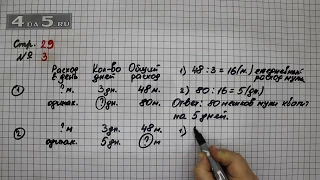 4DA5.RU
Стр. 29
№ 3
Расход в день
Кол-во дней
Общий расход
① ? м. 3 дн. 48 м.
одинак. ? дн. 80 м.
② ? м. 3 дн. 48 м.
одинак. 5 дн. ? м.
1) 48 : 3 = 16 (м.) ежедневный расход муки
2) 80 : 16 = 5 (дн.)
Ответ: 80 мешков муки хватит
на 5 дней.
1)